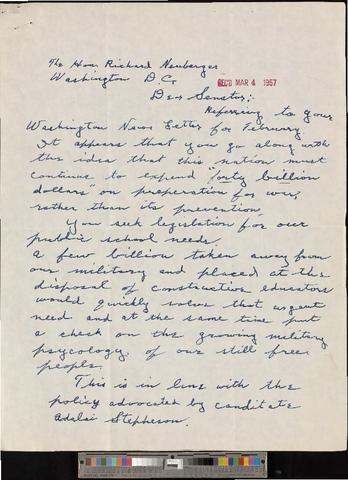 The Hon. Richard Neuberger
Washington D.C.
REC'D MAR 4 1957
Dear Senator:
Referring to your
Washington News Letter for February.
It appears that you go along with
the idea that this nation must
continue to expend "forty billion
dollars" on preperation for war,
rather than its prevention.
You seek legislation for our
public school needs.
A few billion taken away from
our military and placed at the
disposal of constructive educators
would quickly solve that urgent
need and at the same time put
a check on the growing military
psycology, of our still free
people.
This is in line with the
policy advocated by canditate
Adalai Stephenson.